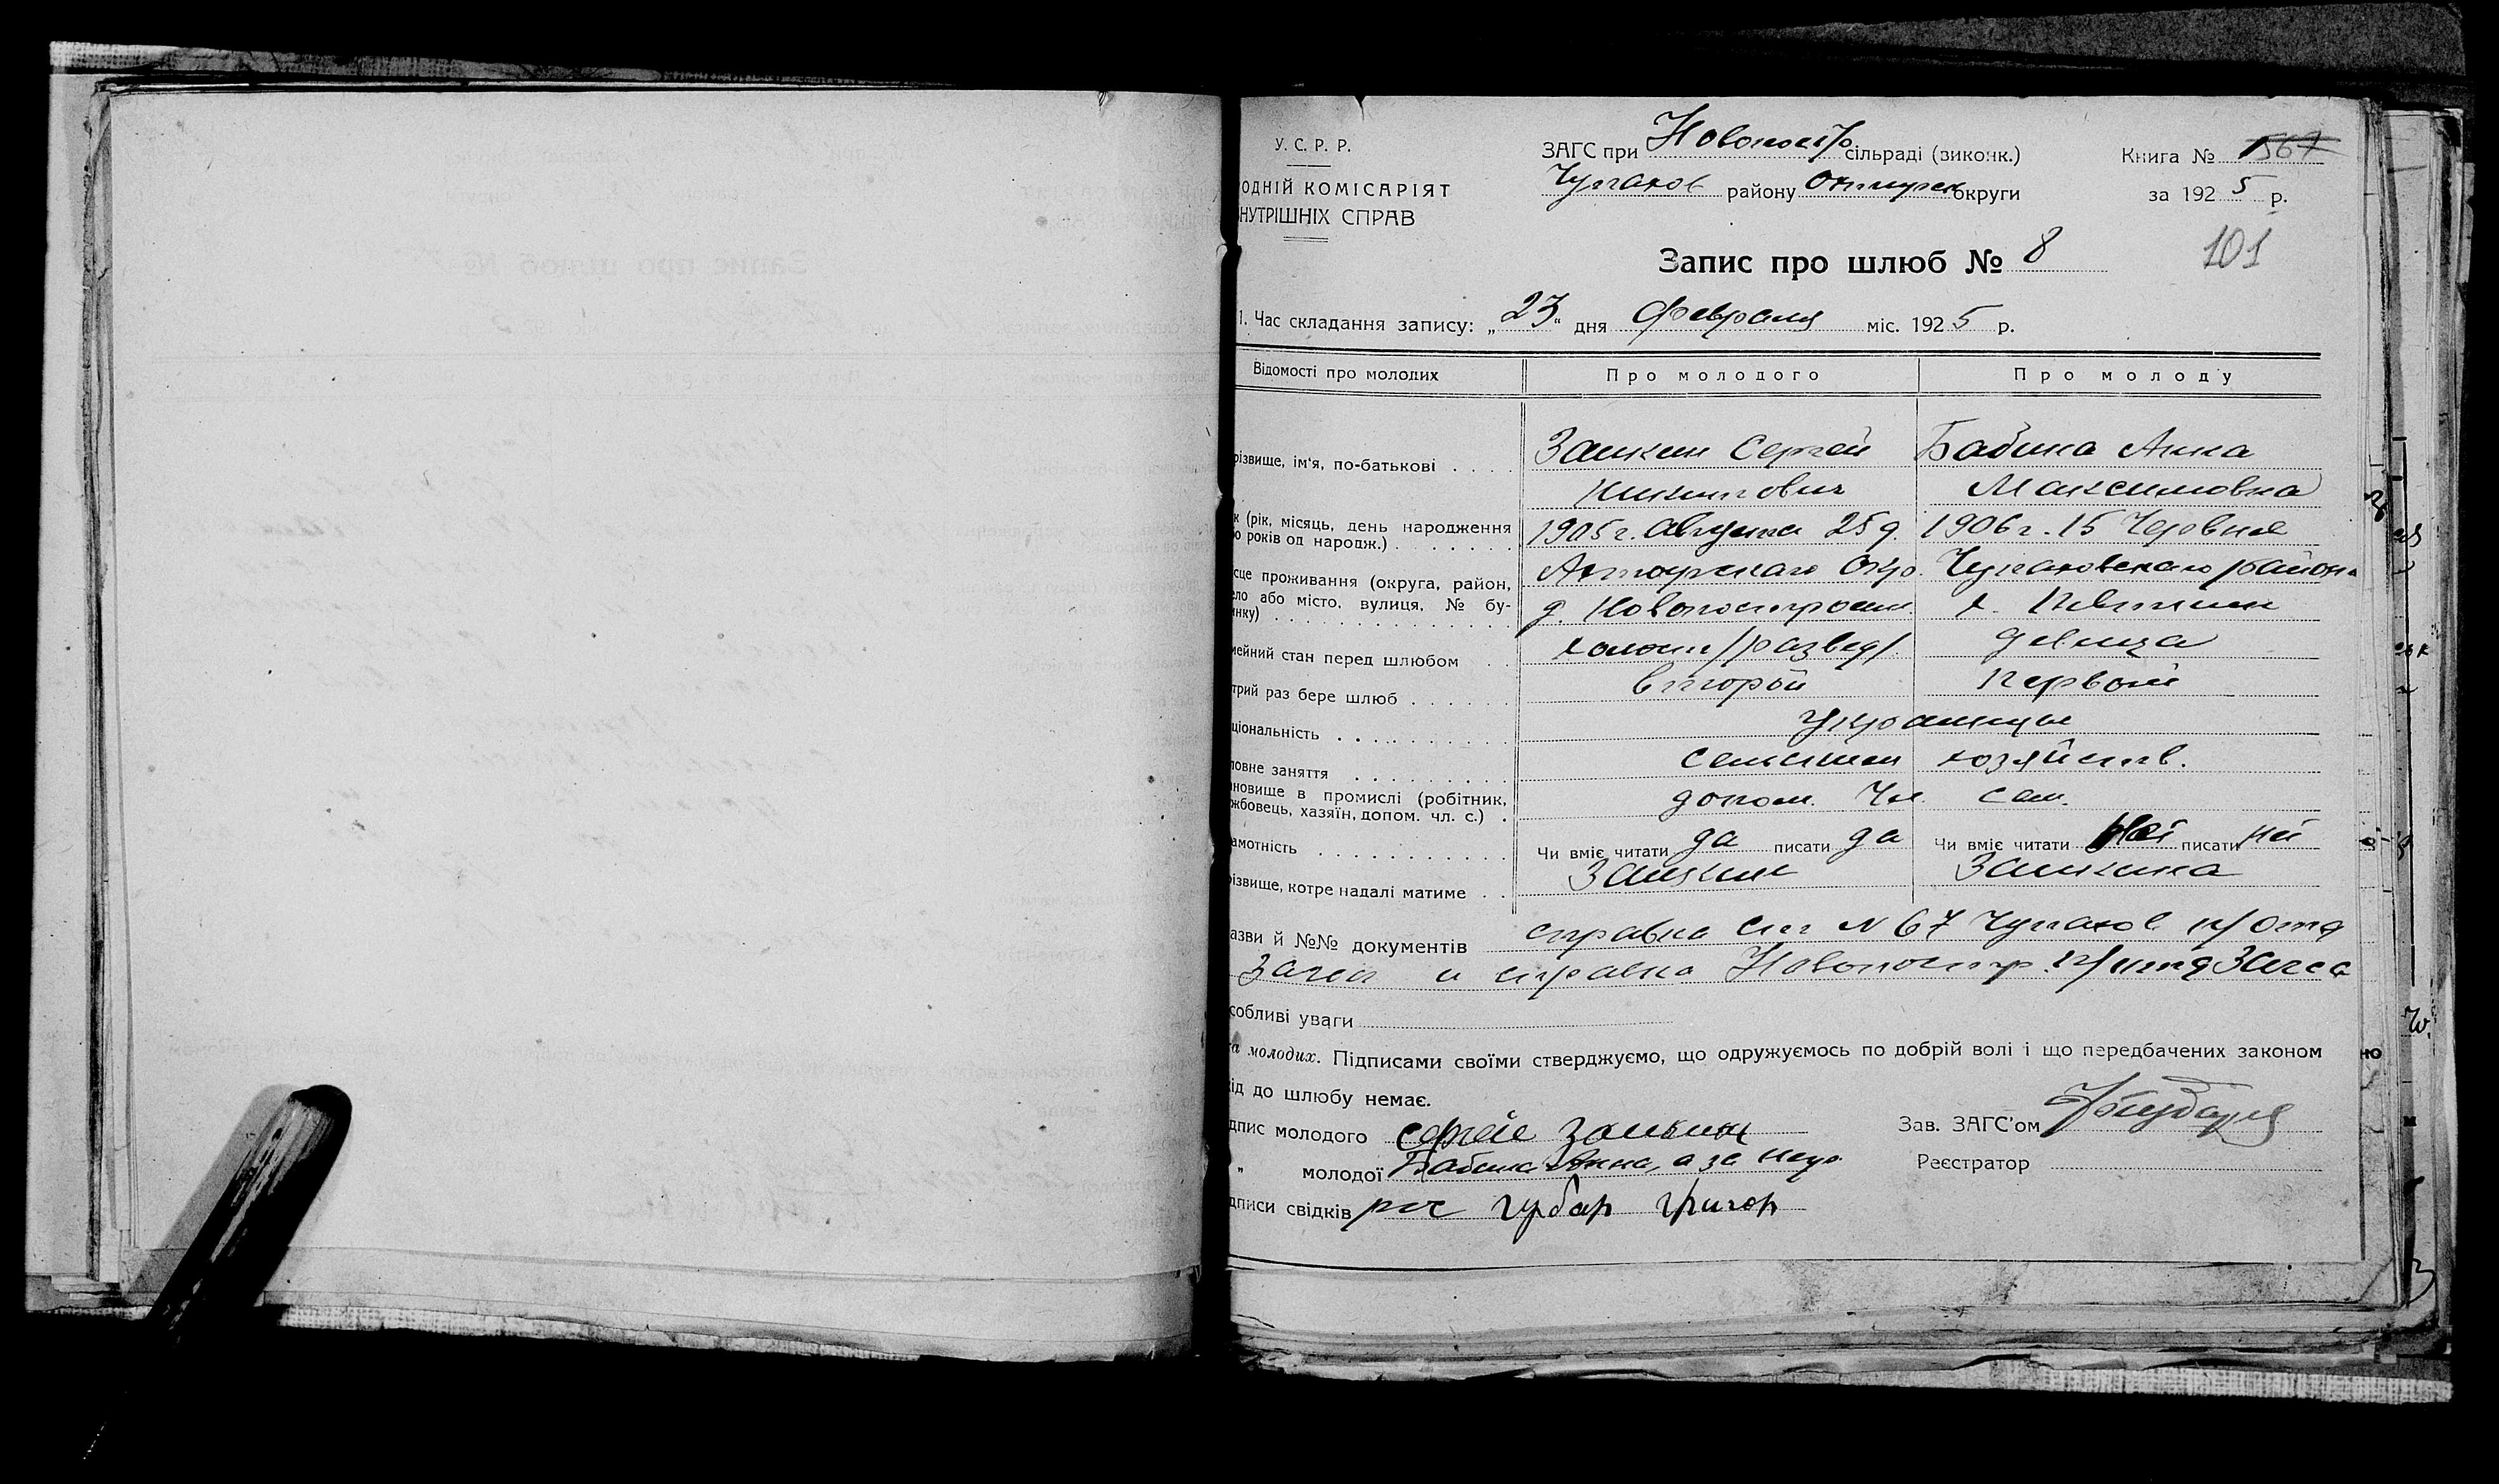 У. С. Р. Р.
ОДНІЙ КОМІСАРІЯТ
НУТРІШНІХ СПРАВ
ЗАГС при Новопостр сільраді (виконк.)
Чупахов району округи
Книга № 567
за 1925 р.
101
Запис про шлюб № 8
1. Час складання запису: „23“ дня Февраля міс. 1925 р.
Відомості про молодих Про молодого Про молоду
різвище, ім'я, по-батькові Заикин Сергей Бабина Анна
Никитович Максимовна
к (рік, місяць, день народження 1905 г. Августа 25 д. 1906 г. 15 Червня
о років од народж.)
сце проживання (округа, район, Ахтырскаго Окр. Чупаховскаго района
ело або місто, вулиця, № бу- д. Новопостроен.
инку)
мейний стан перед шлюбом холост /развед/. девица
трий раз бере шлюб второй первый
ціональність Украинцы
ловне заняття сельским хозяйств.
ановище в промислі (робітник, допом. Чл. сем.
жбовець, хазяїн, допом. чл. с.)
амотність Чи вміє читати да писати да Чи вміє читати неї писати неї
різвище, котре надалі матиме Заикин Заикина
азви й №№ документів справка N 67 Чупахов п/отд
Загса и справка Новопостр. п/отд Загса
собливі уваги
а молодих. Підписами своїми стверджуємо, що одружуємось по добрій волі і що передбачених законом
ід до шлюбу немає.
дпис молодого Сергей Заикин Зав. ЗАГС'ом
„ молодої Бабина Анна, а за неуг Реєстратор
дписи свідків рос губар григор